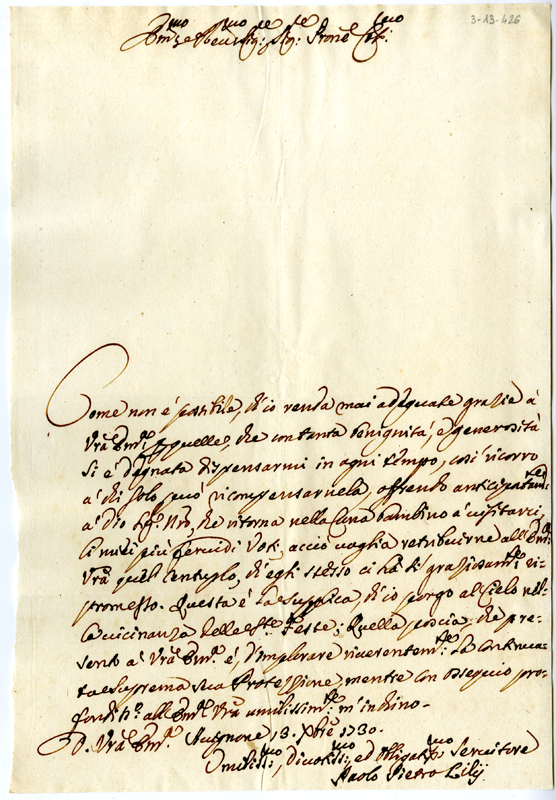 3-13-426
Em.mo e Rev.mo Sig.re Sig.re Pron.e Col.mo
Come non é possibile, ch'io renda mai adequate grazie à
Vrã Em.ª per quelle, che con tanta benignità, e generosità
si é degnata dispensarmi in ogni tempo, così ricorro
a chi solo può ricompensarnela, offrendo anticipatam.te
a Dio Sig.r Nrõ, che ritorna nella Cuna bambino à visitarci,
li miei più fervidi Voti, acciò voglia retribuirne all'Em.ª
Vrã quel Centuplo, ch'egli stesso ci hà sì graziosam.te
promesso. Questa é la supplica, ch'io porgo al Cielo nel-
la vicinanza delle S.te Feste; Quella poscia che pre-
sento à Vrã Em.ª é, d'implorare riverentem.te la continua-
ta suprema sua Protezzione, mentre con ossequio pro-
fondiss.º all'Em.ª Vrã umilissim.te m'inchino-
D. Vrã Em.ª Avignone 13. Xbre 1730.
Umiliss.mo, Divotiss.mo, ed Obligat.mo Servitore
Paolo Pietro Lilij